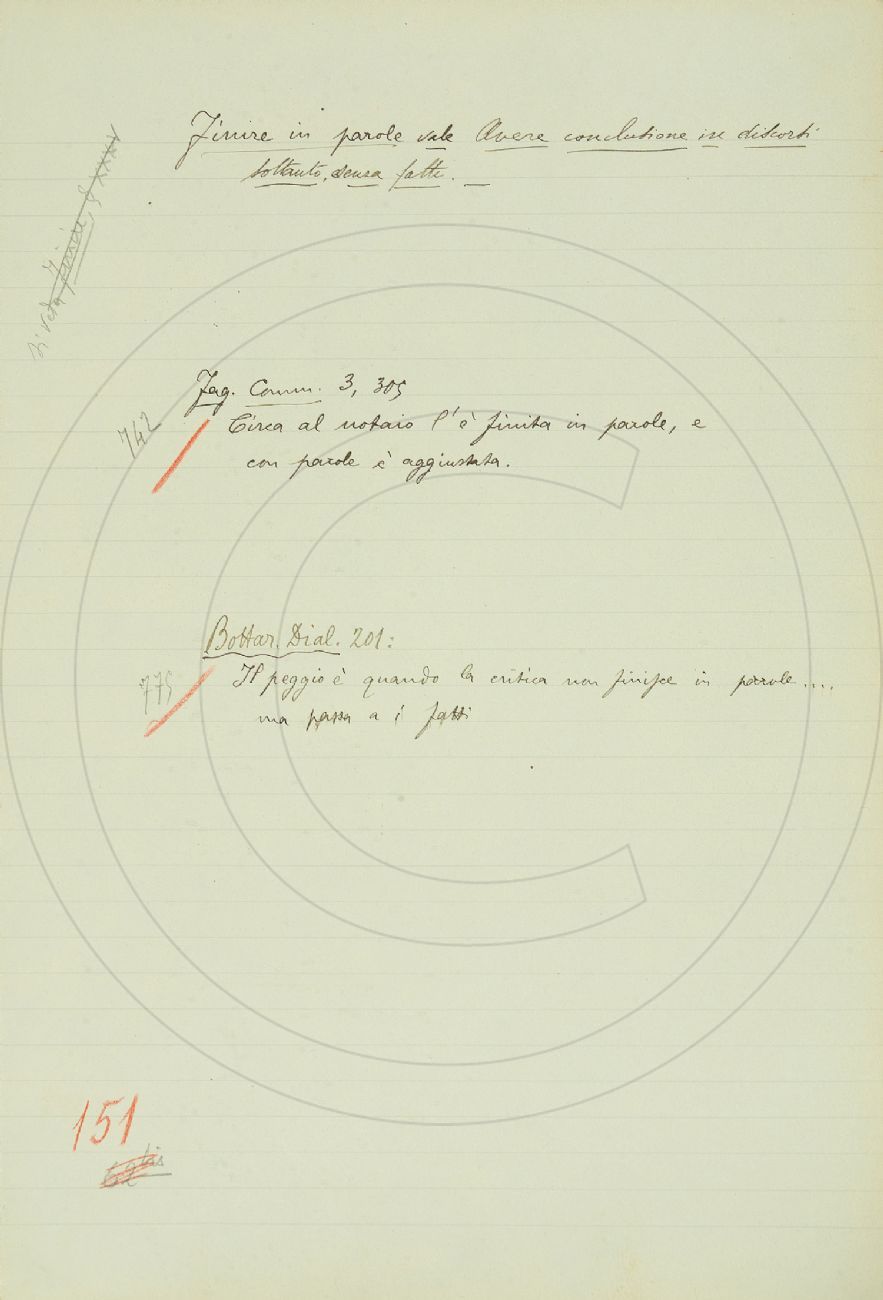 Finire in parole vale Avere conclusione in discorsi
soltanto, senza fatti. —
Si veda Finire, § XXXX
Fag. Comm. 3, 305
742
Circa al notaio l'è finita in parole, e
con parole è aggiustata.
Bottar. Dial. 201:
775
Il peggio è quando la critica non finisce in parole....
ma passa a i fatti
151
bis